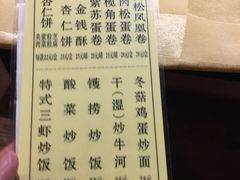 松凤凰卷
肉松蛋卷
榄角蛋卷
紫苏蛋卷
金钱酥
杏仁饼
杏仁饼
冬菇鸡蛋炒面
干(湿)炒牛河
镬捞炒饭
酸菜炒饭
特式三虾炒饭